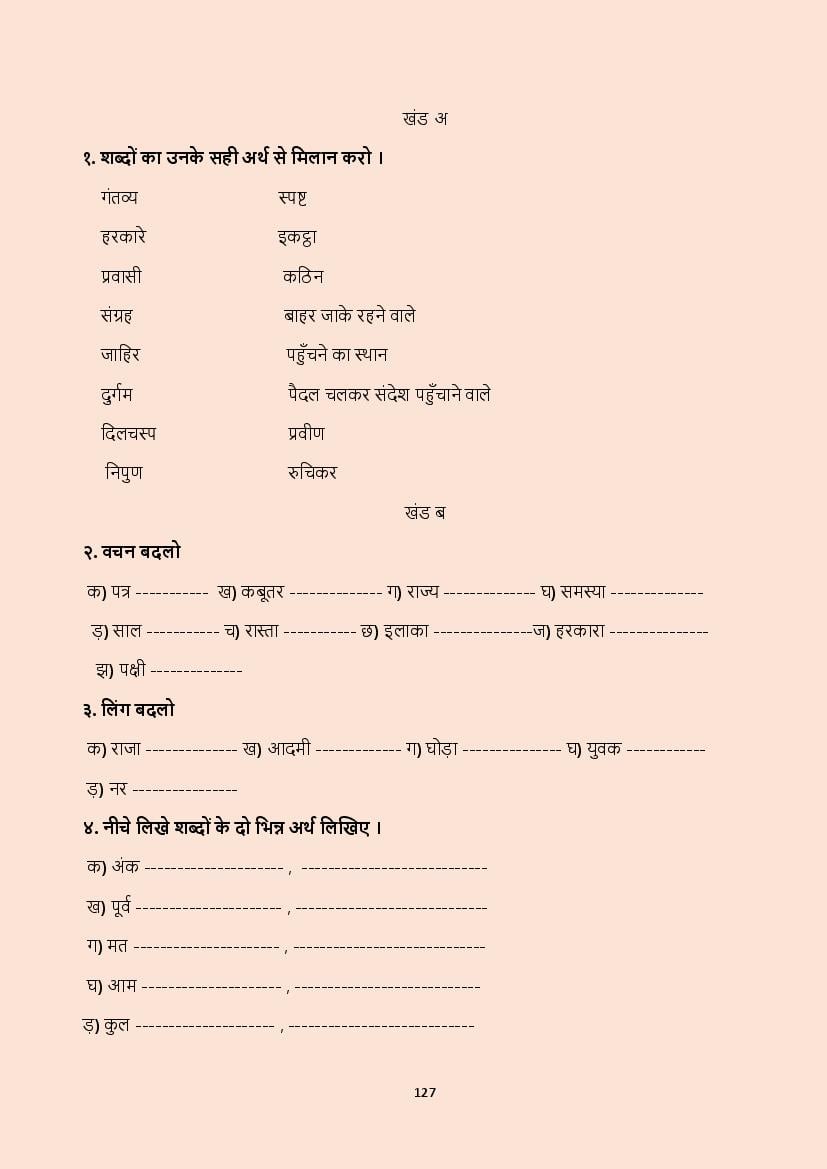 खंड अ
१. शब्दों का उनके सही अर्थ से मिलान करो ।
गंतव्य स्पष्ट
हरकारे इकट्ठा
प्रवासी कठिन
संग्रह बाहर जाके रहने वाले
जाहिर पहुँचने का स्थान
दुर्गम पैदल चलकर संदेश पहुँचाने वाले
दिलचस्प प्रवीण
निपुण रुचिकर
खंड ब
२. वचन बदलो
क) पत्र ----------- ख) कबूतर -------------- ग) राज्य -------------- घ) समस्या --------------
ड़) साल ----------- च) रास्ता ----------- छ) इलाका ---------------ज) हरकारा ---------------
झ) पक्षी --------------
३. लिंग बदलो
क) राजा -------------- ख) आदमी ------------- ग) घोड़ा --------------- घ) युवक ------------
ड़) नर ----------------
४. नीचे लिखे शब्दों के दो भिन्न अर्थ लिखिए ।
क) अंक --------------------- , ----------------------------
ख) पूर्व ---------------------- , -----------------------------
ग) मत ---------------------- , -----------------------------
घ) आम --------------------- , ----------------------------
ड़) कुल --------------------- , ----------------------------
127